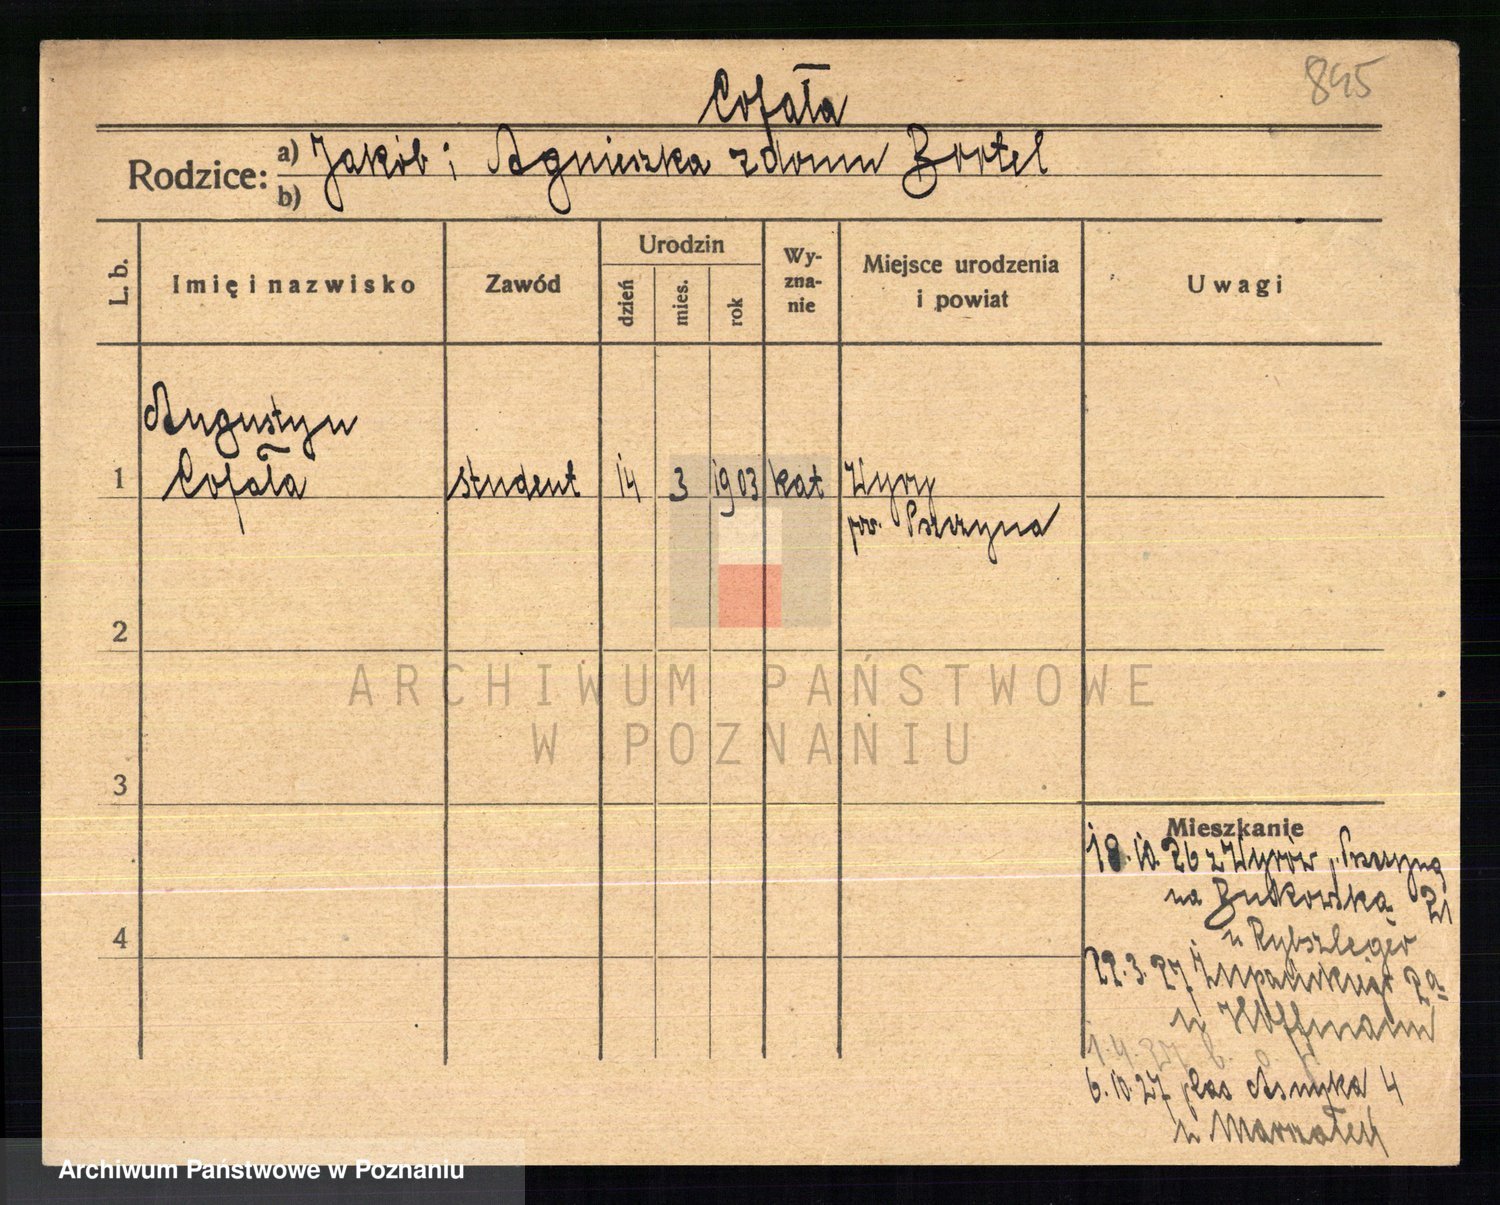 845
Cofała
Rodzice: a) Jakób i Agnieszka z domu Bortel
b)
L. b. Imię i nazwisko Zawód Urodzin dzień mies. rok Wy-zna-nie Miejsce urodzenia i powiat Uwagi
Augustyn
1 Cofała student 14 3 1903 kat Wyry
pow. Pszczyna
2
3
4
Mieszkanie
18.10.26 z Wyrów, Pszczyna
na Bukowską 21
u
22.3.27 2a
u Hoffmann
1.4.27
6.10.27 plac Asnyka 4
u
ARCHIWUM PAŃSTWOWE
W POZNANIU
Archiwum Państwowe w Poznaniu